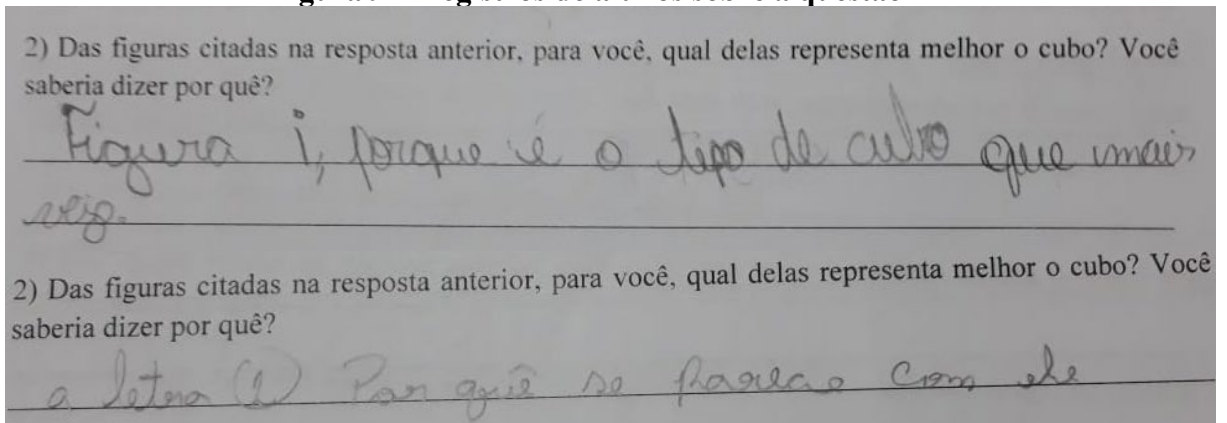 2) Das figuras citadas na resposta anterior, para você, qual delas representa melhor o cubo? Você
saberia dizer por quê?
Figura i, porque é o tipo de cubo que mais
vejo.
2) Das figuras citadas na resposta anterior, para você, qual delas representa melhor o cubo? Você
saberia dizer por quê?
a letra (1) Por quê se parece com ele